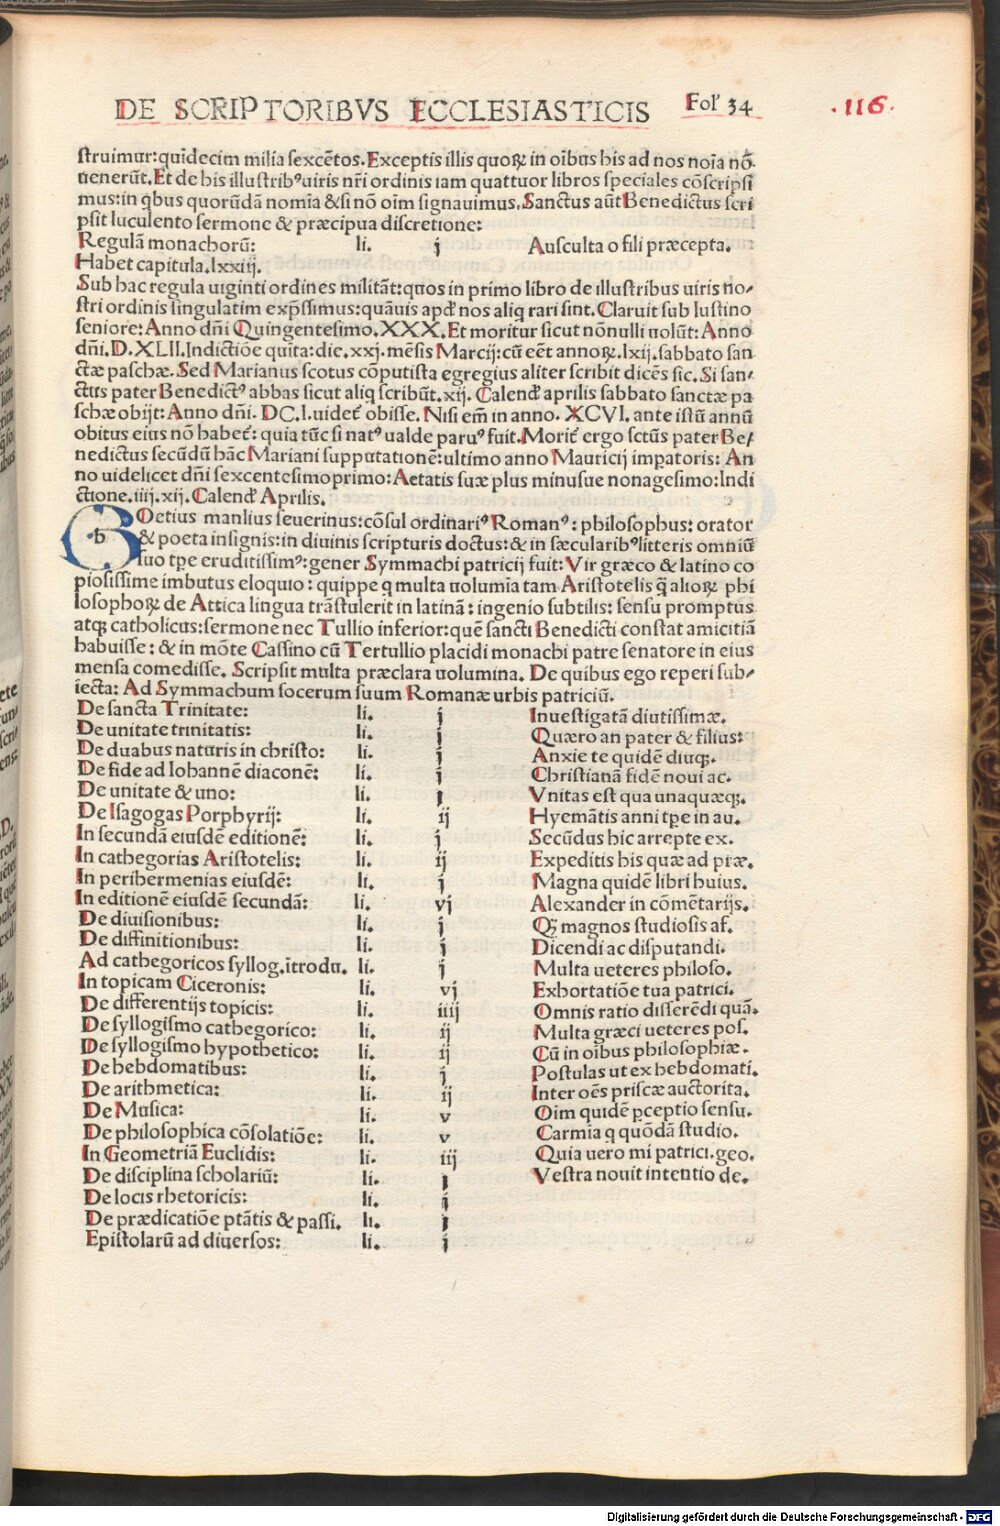 DE SCRIPTORIBVS ECCLESIASTICIS Fol' 34 .116.
struimur:quĩdecim milia sexcẽtos.Exceptis illis quoꝝ in oĩbus his ad nos noĩa nõ
uenerũt.Et de his illustribꝰ uiris nr̃i ordinis iam quattuor libros speciales cõscripsi
mus:in ꝗbus quorũdã nomĩa & si nõ oĩm signauimus.Sanctus aũt Benedictus scri
psit luculento sermone & præcipua discretione:
Regulã monachorũ: li. j Ausculta o fili præcepta.
Habet capitula.lxxiij.
Sub hac regula uiginti ordines militãt:quos in primo libro de illustribus uiris no⸗
stri ordinis singulatim exp̃ssimus:quãuis apđ nos aliꝗ rari sint.Claruit sub Iustino
seniore:Anno dñi Quingentesimo.XXX.Et moritur sicut nõnulli uolũt:Anno
dñi.D.XLII.Indictiõe quĩta:die.xxj.mẽsis Marcij:cũ eẽt annoꝝ.lxij.sabbato san
ctæ paschæ.Sed Marianus scotus cõputista egregius aliter scribit dicẽs sic.Si san⸗
ctus pater Benedictꝰ abbas sicut aliꝗ scribũt.xij.Calenđ aprilis sabbato sanctæ pa
schæ obijt:Anno dñi.DC.I.uidet̃ obisse.Nisi em̃ in anno.XCVI.ante istũ annũ
obitus eius nõ habet̃:quia tũc si natꝰ ualde paruꝰ fuit.Morit̃ ergo sctũs pater Be⸗
nedictus secũdũ hãc Mariani supputationẽ:ultimo anno Mauricij impatoris:An
no uidelicet dñi sexcentesimoprimo:Aetatis suæ plus minusue nonagesimo:Indi
ctione.iiij.xij.Calenđ Aprilis.
BOetius manlius seuerinus:cõsul ordinariꝰ Romanꝰ:philosophus:orator
& poeta insignis:in diuinis scripturis doctus:& in sæcularibꝰ litteris omniũ
suo tp̃e eruditissimꝰ:gener Symmachi patricij fuit:Vir græco & latino co
piosissime imbutus eloquio:quippe ꝗ multa uolumĩa tam Aristotelis ꝗ̃ alioꝝ phi
losophoꝝ de Attica lingua trãstulerit in latinã:ingenio subtilis:sensu promptus
atꝗ catholicus:sermone nec Tullio inferior:quẽ sancti Benedicti constat amicitiã
habuisse:& in mõte Cassino cũ Tertullio placidi monachi patre senatore in eius
mensa comedisse.Scripsit multa præclara uolumina.De quibus ego reperi sub⸗
iecta:Ad Symmachum socerum suum Romanæ urbis patriciũ.
De sancta Trinitate: li. j Inuestigatã diutissimæ.
De unitate trinitatis: li. j Quæro an pater & filius:
De duabus naturis in christo: li. j Anxie te quidẽ diuꝗ.
De fide ad Iohannẽ diaconẽ: li. j Christianã fidẽ noui ac.
De unitate & uno: li. j Vnitas est qua unaquæꝗ.
De Isagogas Porphyrij: li. ij Hyemãtis anni tp̃e in au.
In secundã eiusdẽ editionẽ: li. j Secũdus hic arrepte ex.
In cathegorias Aristotelis: li. ij Expeditis his quæ ad præ.
In perihermenias eiusdẽ: li. j Magna quidẽ libri huius.
In editionẽ eiusdẽ secundã: li. vj Alexander in cõmẽtarijs.
De diuisionibus: li. j Qꝫ magnos studiosis af.
De diffinitionibus: li. j Dicendi ac disputandi.
Ad cathegoricos syllog.ĩtrodu. li. j Multa ueteres philoso.
In topicam Ciceronis: li. vj Exhortatiõe tua patrici.
De differentijs topicis: li. iiij Omnis ratio disserẽdi quã.
De syllogismo cathegorico: li. ij Multa græci ueteres pos.
De syllogismo hypothetico: li. ij Cũ in oĩbus philosophiæ.
De hebdomatibus: li. j Postulas ut ex hebdomati.
De arithmetica: li. ij Inter oẽs priscæ auctorita.
De Musica: li. v Oĩm quidẽ ꝑceptio sensu.
De philosophica cõsolatiõe: li. v Carmĩa ꝗ quõdã studio.
In Geometriã Euclidis: li. iij Quia uero mi patrici.geo.
De disciplina scholariũ: li. j Vestra nouit intentio de.
De locis rhetoricis: li. j
De prædicatiõe ptãtis & passi. li. j
Epistolarũ ad diuersos: li. j
Digitalisierung gefördert durch die Deutsche Forschungsgemeinschaft - DFG